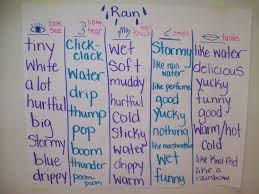 Rain
look
see
tiny
white
a lot
hurtful
big
Stormy
blue
drippy
listen
hear
click-
clack
water
drip
thump
pop
boom
thunder
poom-
poom
feel
touch
wet
soft
muddy
hurtful
cold
Sticky
water
drippy
warm
smell
Stormy
like rain
water
like perfume
good
yucky
nothing
like marshmallow
wet
funny
taste
like water
delicious
yucky
funny
good
warm/hot
cold
like Kool-Aid
like a
rainbow